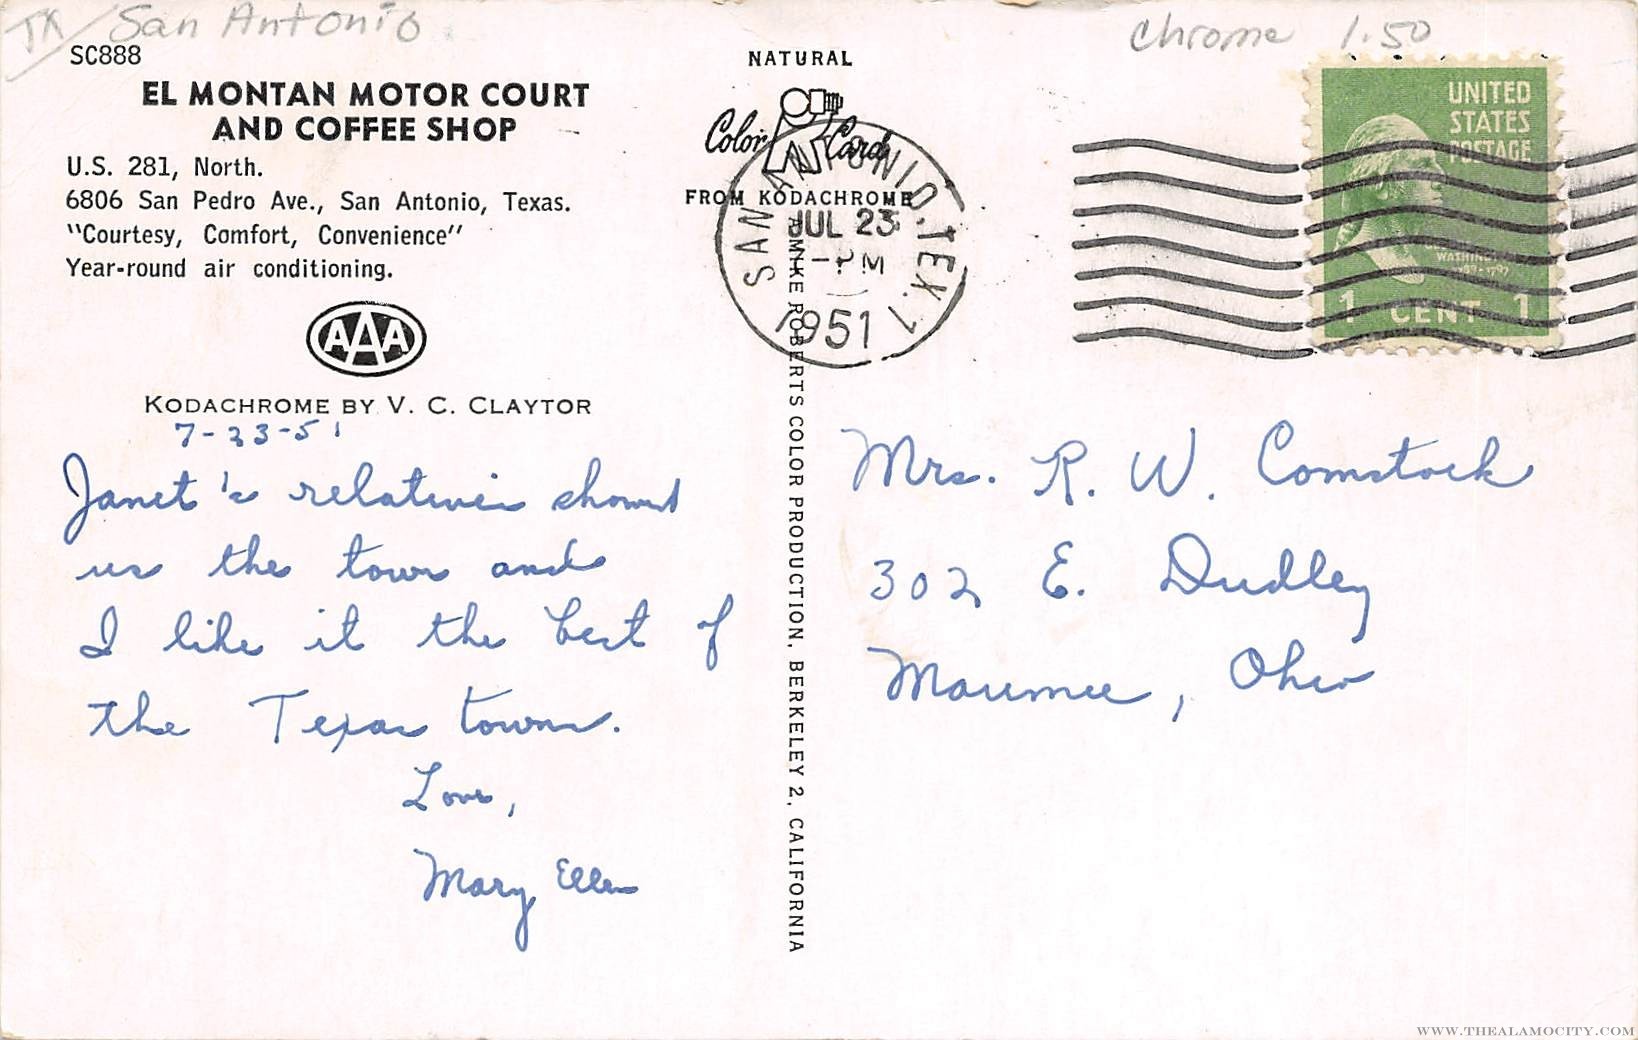 TX / San Antonio
Chrome 1.50
SC888
EL MONTAN MOTOR COURT
AND COFFEE SHOP
U.S. 281, North.
6806 San Pedro Ave., San Antonio, Texas.
"Courtesy, Comfort, Convenience"
Year-round air conditioning.
AAA
KODACHROME BY V. C. CLAYTOR
7-23-51
Janet's relatives showed
us the town and
I like it the best of
the Texas towns.
Love,
Mary Ellen
NATURAL
Color Card
FROM KODACHROME
A MIKE ROBERTS COLOR PRODUCTION, BERKELEY 2, CALIFORNIA
SAN ANTONIO, TEX. 1
JUL 23
PM
1951
UNITED
STATES
POSTAGE
WASHINGTON
1789-1797
1 CENT 1
Mrs. R. W. Comstock
302 E. Dudley
Maumee, Ohio
WWW.THEALAMOCITY.COM